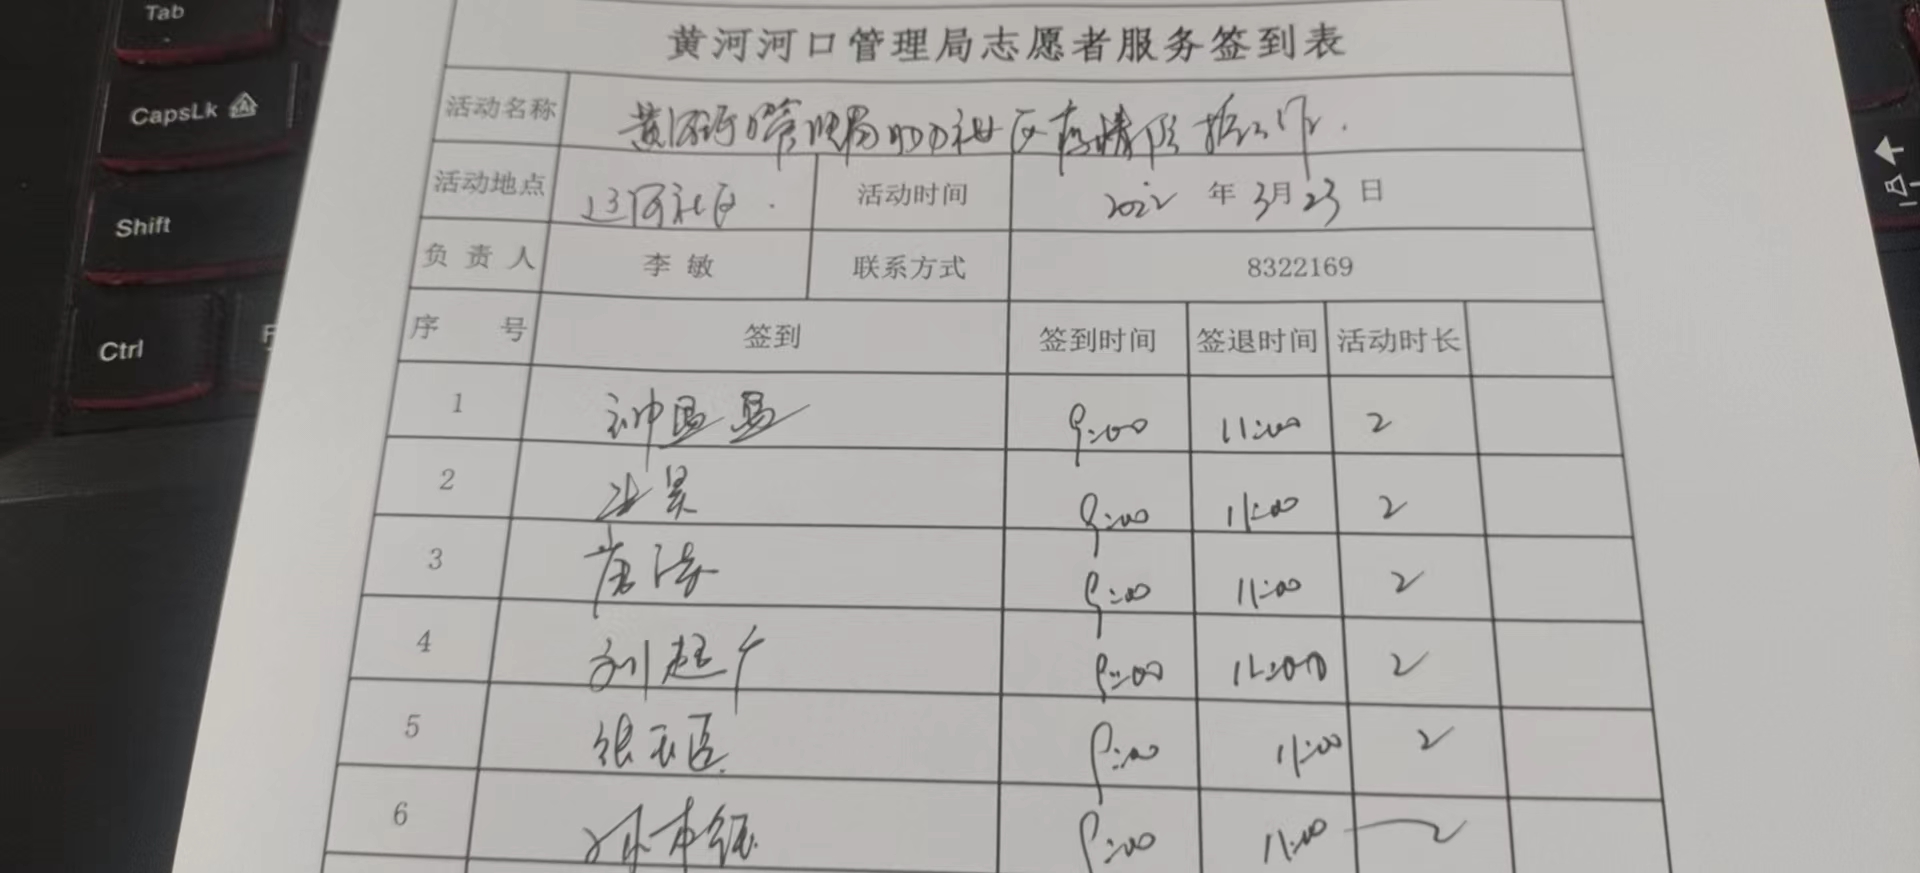 Tab
CapsLk
Shift
Ctrl
黄河河口管理局志愿者服务签到表
活动名称 黄河河口管理局 社区疫情防控工作.
活动地点 辽河社区. 活动时间 2022 年 3月 23 日
负责人 李敏 联系方式 8322169
序号 签到 签到时间 签退时间 活动时长
1 9:00 11:00 2
2 9:00 11:00 2
3 9:00 11:00 2
4 9:00 11:00 2
5 9:00 11:00 2
6 9:00 11:00 2